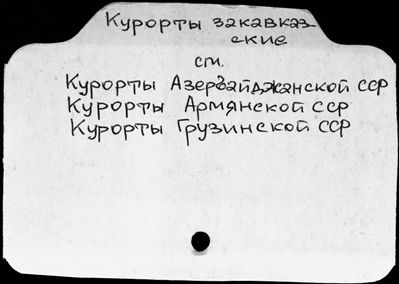 Курорты закавказ-
ские
см.
Курорты Азербайджанской ССР
Курорты Армянской ССР
Курорты Грузинской ССР